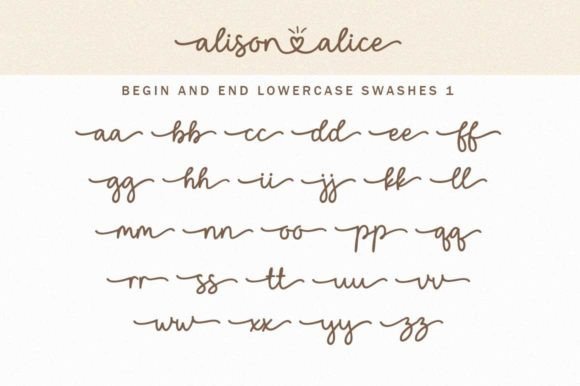 alison alice
BEGIN AND END LOWERCASE SWASHES 1
aa bb cc dd ee ff
gg hh ii jj kk ll
mm nn oo pp qq
rr ss tt uu vv
ww xx yy zz